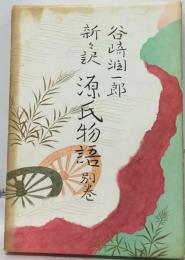 谷崎潤一郎
新々訳
源氏物語
別巻